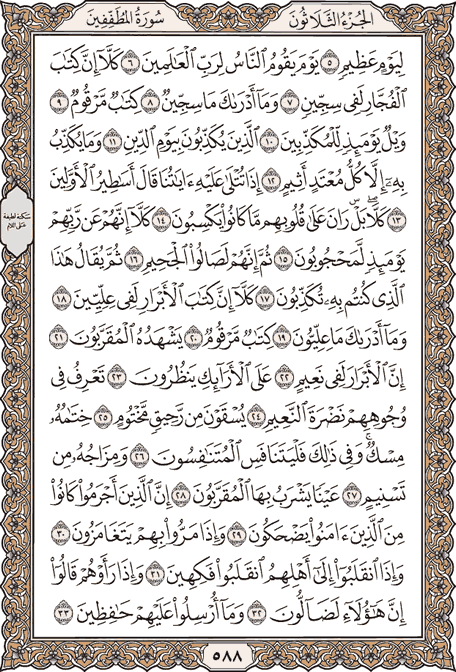 الجزء الثلاثون
سورة المطففين
لِيَوْمٍ عَظِيمٍ ٥ يَوْمَ يَقُومُ ٱلنَّاسُ لِرَبِّ ٱلْعَٰلَمِينَ ٦ كَلَّآ إِنَّ كِتَٰبَ
ٱلْفُجَّارِ لَفِى سِجِّينٍ ٧ وَمَآ أَدْرَىٰكَ مَا سِجِّينٌ ٨ كِتَٰبٌ مَّرْقُومٌ ٩
وَيْلٌ يَوْمَئِذٍ لِّلْمُكَذِّبِينَ ١٠ ٱلَّذِينَ يُكَذِّبُونَ بِيَوْمِ ٱلدِّينِ ١١ وَمَا يُكَذِّبُ
بِهِۦٓ إِلَّا كُلُّ مُعْتَدٍ أَثِيمٍ ١٢ إِذَا تُتْلَىٰ عَلَيْهِ ءَايَٰتُنَا قَالَ أَسَٰطِيرُ ٱلْأَوَّلِينَ
١٣ كَلَّا ۖ بَلْ ۜ رَانَ عَلَىٰ قُلُوبِهِم مَّا كَانُوا۟ يَكْسِبُونَ ١٤ كَلَّآ إِنَّهُمْ عَن رَّبِّهِمْ
يَوْمَئِذٍ لَّمَحْجُوبُونَ ١٥ ثُمَّ إِنَّهُمْ لَصَالُوا۟ ٱلْجَحِيمِ ١٦ ثُمَّ يُقَالُ هَٰذَا
ٱلَّذِى كُنتُم بِهِۦ تُكَذِّبُونَ ١٧ كَلَّآ إِنَّ كِتَٰبَ ٱلْأَبْرَارِ لَفِى عِلِّيِّينَ ١٨
وَمَآ أَدْرَىٰكَ مَا عِلِّيُّونَ ١٩ كِتَٰبٌ مَّرْقُومٌ ٢٠ يَشْهَدُهُ ٱلْمُقَرَّبُونَ ٢١
إِنَّ ٱلْأَبْرَارَ لَفِى نَعِيمٍ ٢٢ عَلَى ٱلْأَرَآئِكِ يَنظُرُونَ ٢٣ تَعْرِفُ فِى
وُجُوهِهِمْ نَضْرَةَ ٱلنَّعِيمِ ٢٤ يُسْقَوْنَ مِن رَّحِيقٍ مَّخْتُومٍ ٢٥ خِتَٰمُهُۥ
مِسْكٌ ۚ وَفِى ذَٰلِكَ فَلْيَتَنَافَسِ ٱلْمُتَنَٰفِسُونَ ٢٦ وَمِزَاجُهُۥ مِن
تَسْنِيمٍ ٢٧ عَيْنًا يَشْرَبُ بِهَا ٱلْمُقَرَّبُونَ ٢٨ إِنَّ ٱلَّذِينَ أَجْرَمُوا۟ كَانُوا۟
مِنَ ٱلَّذِينَ ءَامَنُوا۟ يَضْحَكُونَ ٢٩ وَإِذَا مَرُّوا۟ بِهِمْ يَتَغَامَزُونَ ٣٠
وَإِذَا ٱنقَلَبُوٓا۟ إِلَىٰٓ أَهْلِهِمُ ٱنقَلَبُوا۟ فَكِهِينَ ٣١ وَإِذَا رَأَوْهُمْ قَالُوٓا۟
إِنَّ هَٰٓؤُلَآءِ لَضَآلُّونَ ٣٢ وَمَآ أُرْسِلُوا۟ عَلَيْهِمْ حَٰفِظِينَ ٣٣
سكتة لطيفة
على اللام
٥٨٨